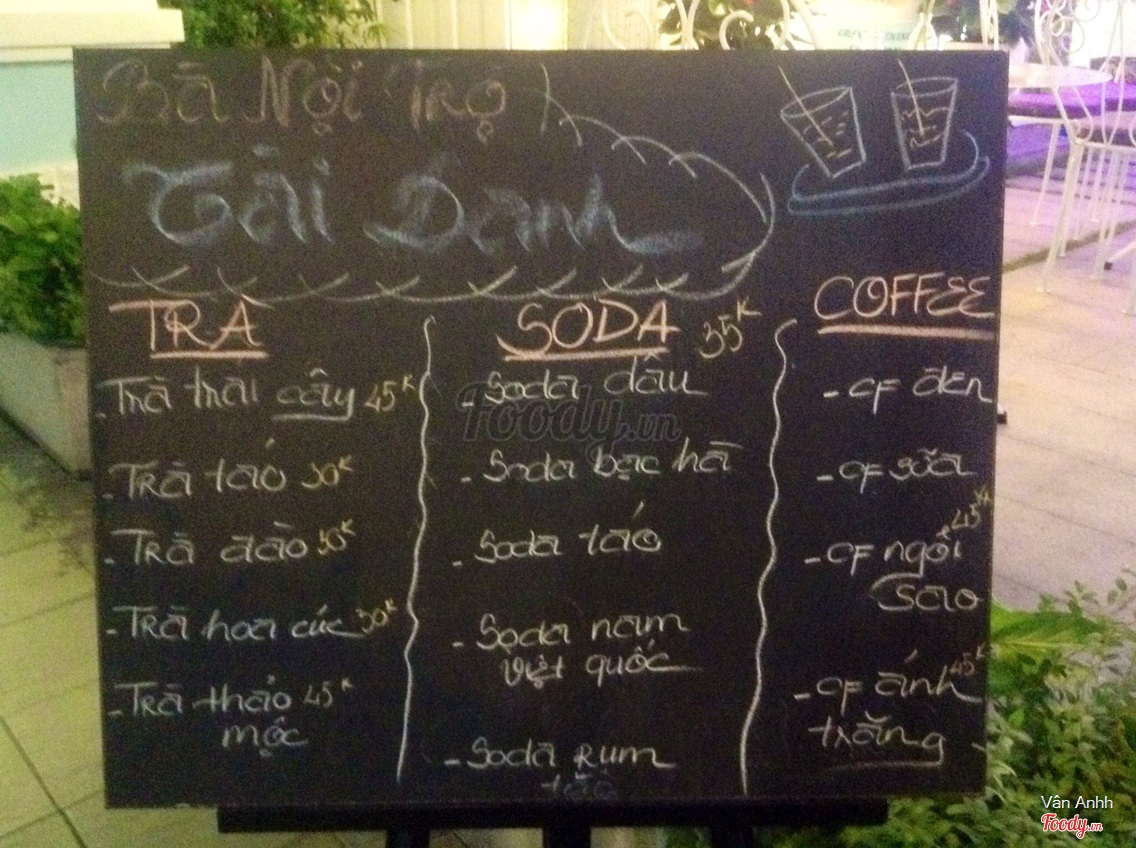 Bà Nội Trợ
Tài Danh
TRÀ
- Trà trái cây 45K
- Trà táo 30K
- Trà đào 30K
- Trà hoa cúc 30K
- Trà thảo 45K
mộc
SODA 35K
- Soda dâu
- Soda bạc hà
- Soda táo
- Soda nam
việt quốc
- Soda Rum
COFFEE
- CF đen
- CF sữa
- CF ngôi 45K
Sao
- CF ánh 45K
trăng
Foody.vn
Vân Anhh
Foody.vn